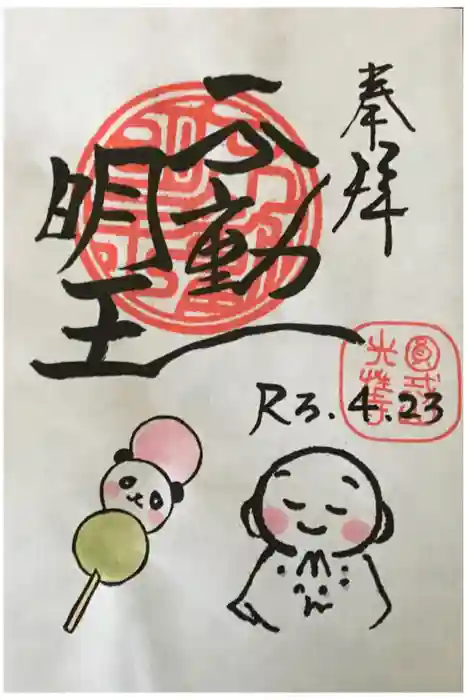 奉拝
不動
明王
R3.4.23